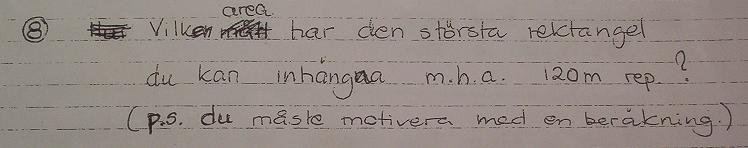 area
⑧ Vilken har den största rektangel
du kan inhängna m.h.a. 120m rep.?
(p.s. du måste motivera med en beräkning.)